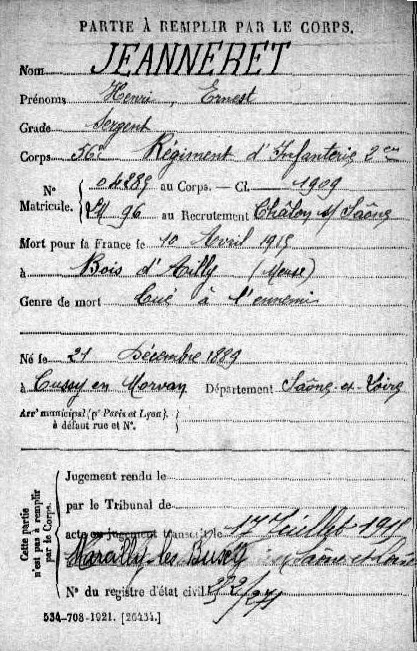 PARTIE À REMPLIR PAR LE CORPS.
Nom JEANNERET
Prénoms Henri, Ernest
Grade Sergent
Corps 56e Régiment d'Infanterie 2e
N° 04285 au Corps. — Cl. 1909
Matricule. 96 au Recrutement Châlon s/ Saône
Mort pour la France le 10 Avril 1915
à Bois d'Ailly (Meuse)
Genre de mort Tué à l'ennemi
Né le 21 Décembre 1889
à Cussy en Morvan Département Saône-et-Loire
Arr' municipal (p' Paris et Lyon),
à défaut rue et N°.
Cette partie
n'est pas à remplir
par le Corps.
Jugement rendu le
par le Tribunal de
acte ou jugement transcrit le 17 Juillet 1915
Marcilly-les-Buxy Saône et Loire
N° du registre d'état civil
534-708-1921. [26434.]